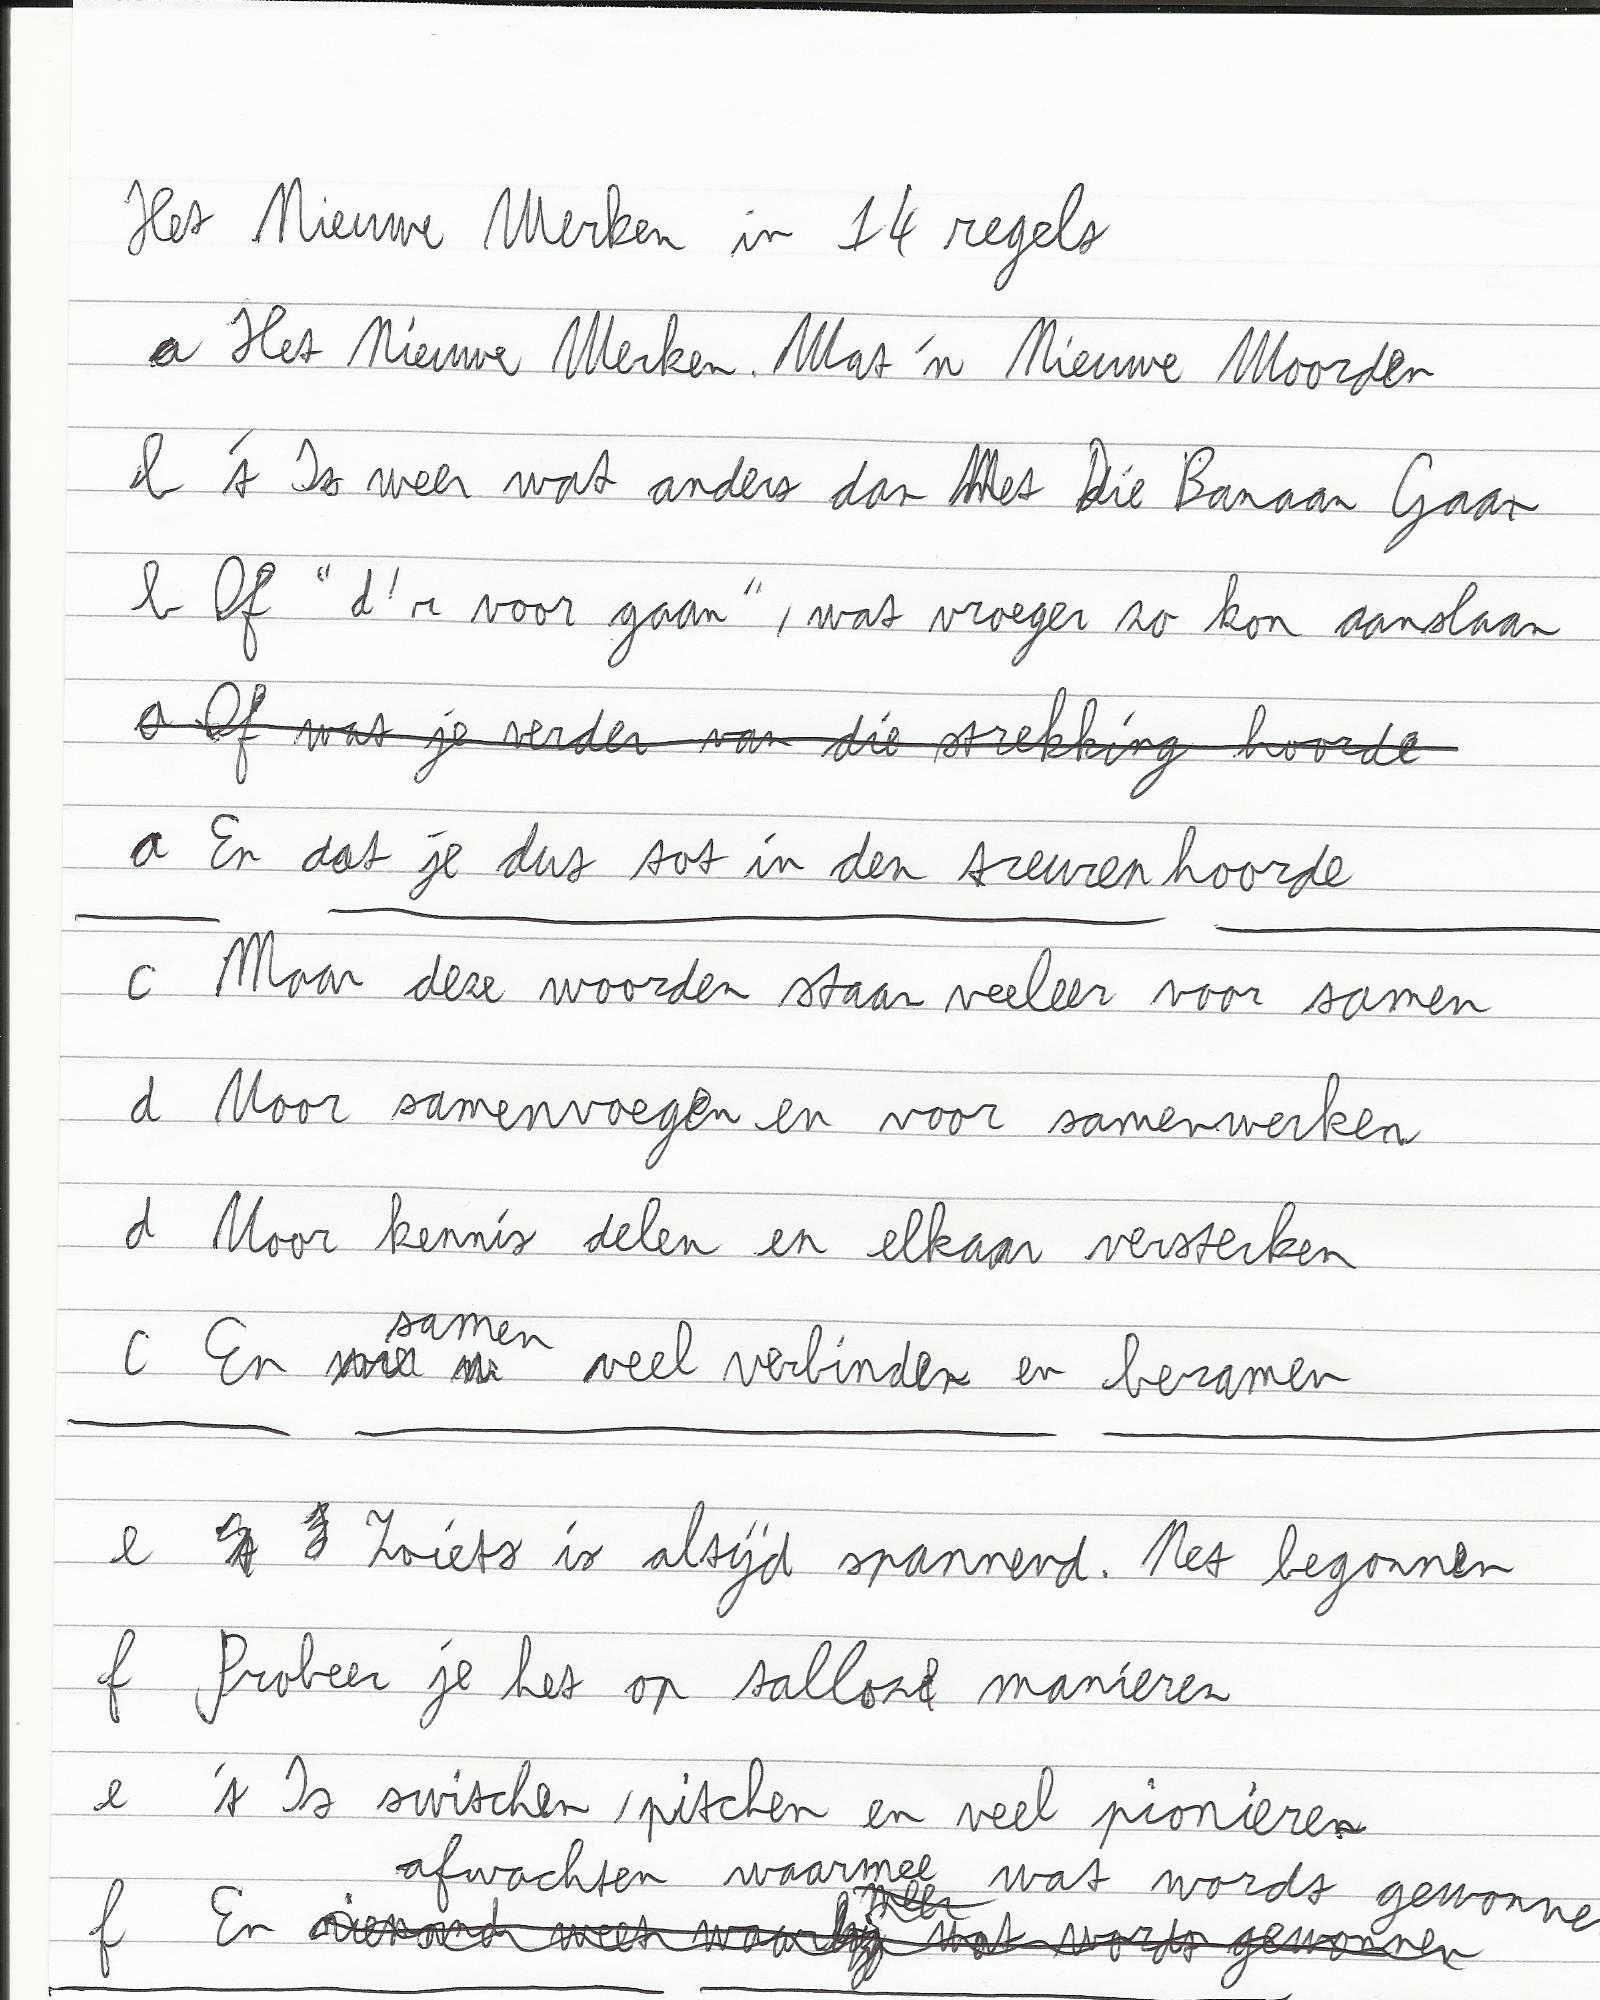 Het Nieuwe Werken in 14 regels
a Het Nieuwe Werken. Wat 'n Nieuwe Woorden
b 't Is weer wat anders dan Met Die Banaan Gaan
b Of "d'r voor gaan", wat vroeger zo kon aanslaan
a Of wat je verder van die strekking hoorde
a En dat je dus tot in den treurenhoorde
c Maar deze woorden staan veeleer voor samen
d Voor samenvoegen en voor samenwerken
d Voor kennis delen en elkaar versterken
samen
c En veel verbinden en beramen
e Zoiets is altijd spannend. Net begonnen
f Probeer je het op talloze manieren
e 't Is switchen, pitchen en veel pionieren
afwachten waarmee wat wordt gewonne
meer
f En niemand weet waarbij wat wordt gewonnen